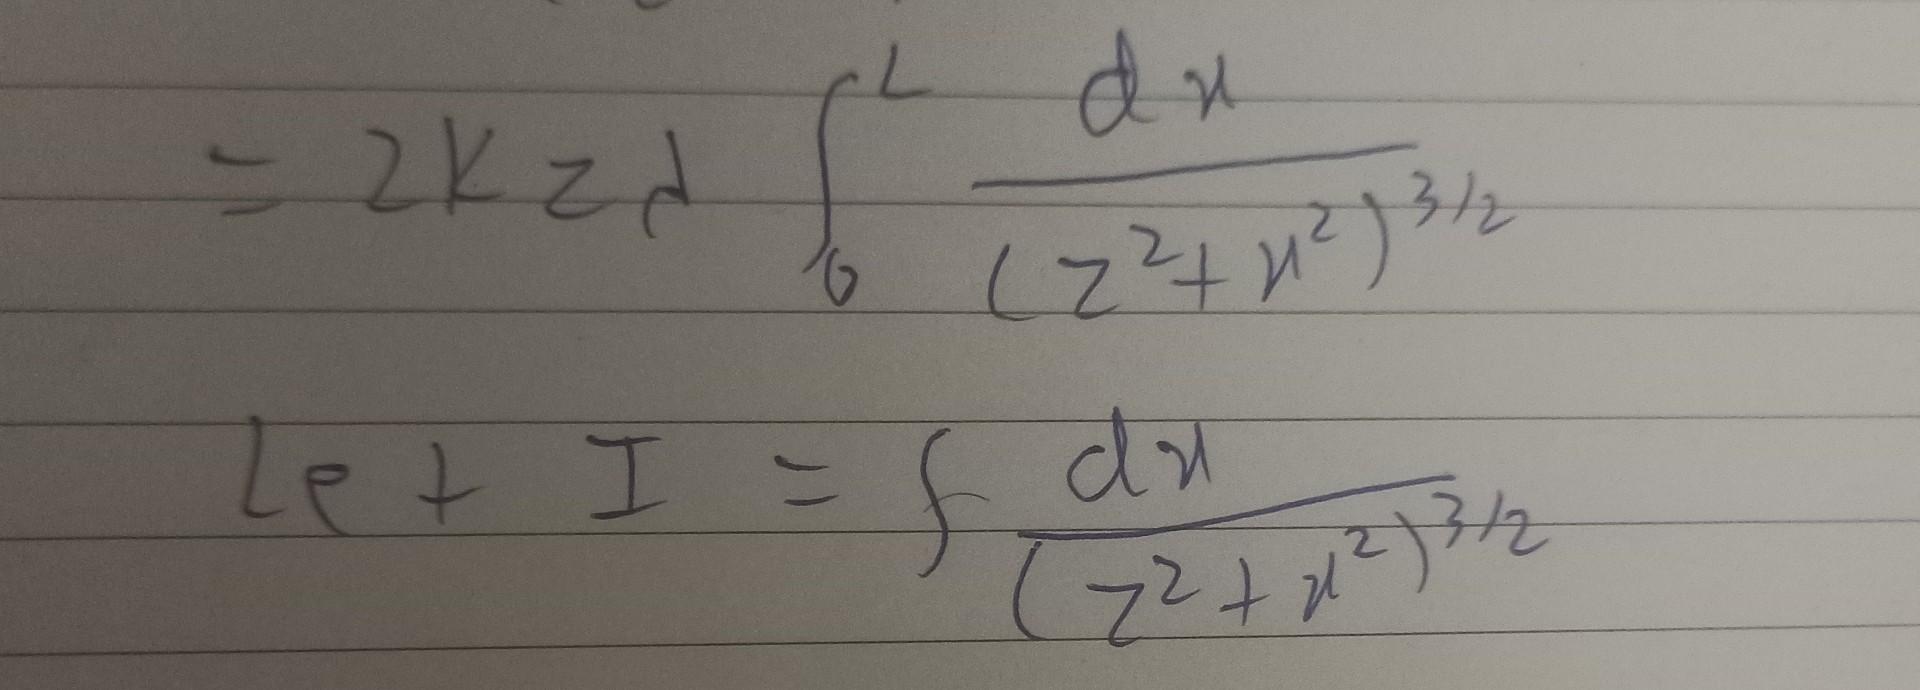 = 2kzλ ∫₀ᴸ dx/(z²+x²)^3/2
Let I = ∫ dx/(z²+x²)^3/2